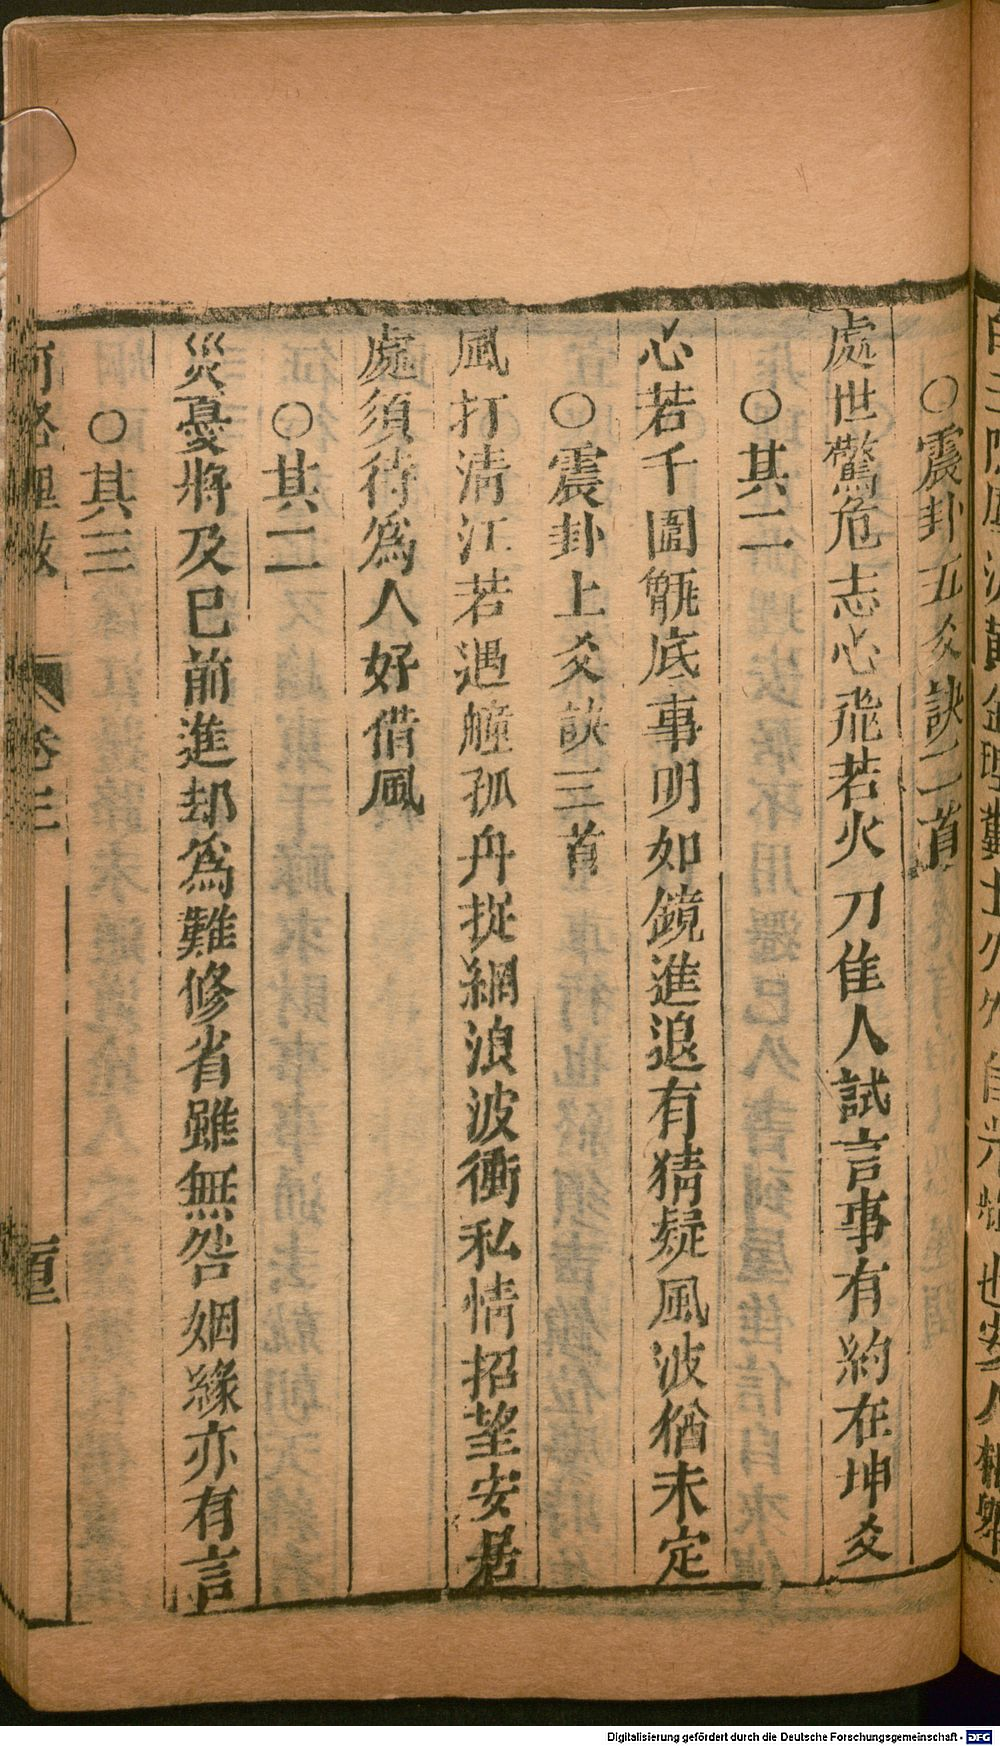 ○震卦五爻訣二首
處世驚危志心飛若火刀隹人試言事有約在坤爻
○其二
心若千圖甑底事明如鏡進退有猜疑風波猶未定
○震卦上爻訣三首
風打清江若遇艟孤舟捉網浪波衝私情招望安居
處須待為人好借風
○其二
災憂將及已前進却為難修省雖無咎姻緣亦有言
○其三
卷三
Digitalisierung gefördert durch die Deutsche Forschungsgemeinschaft - DFG